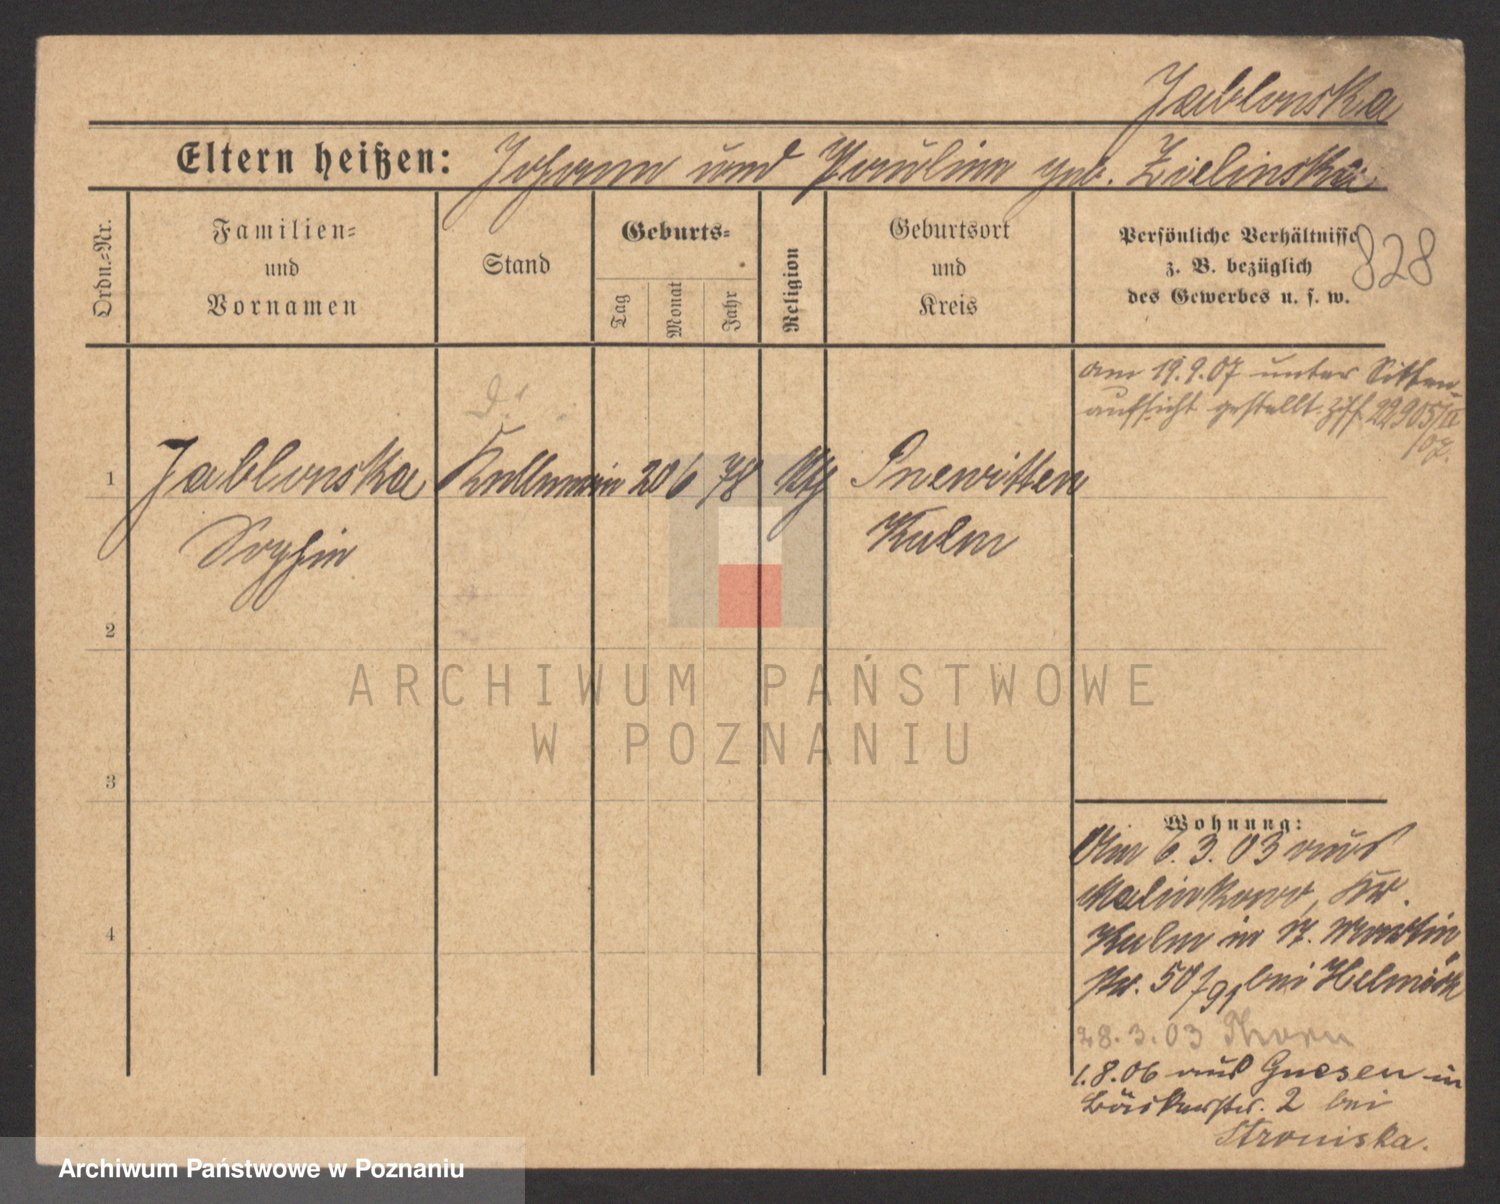 Jablonska
Eltern heißen: Johann und Pauline geb. Zielinska
Ordn.-Nr.
Familien-
und
Vornamen
Stand
Geburts-
Tag
Monat
Jahr
Religion
Geburtsort
und
Kreis
Persönliche Verhältnisse
z. B. bezüglich
des Gewerbes u. s. w.
828
am 19.9.07 unter Sitten-
aufsicht gestellt. 22905/II
/07.
1
Jablonska
Kellnerin
20 6 78
Kth
Pnewitten
Sophie
Kulm
2
3
4
ARCHIWUM PAŃSTWOWE
W POZNANIU
Wohnung:
Am 6.3.03 aus
Malinkowo, Kr.
Kulm in St. Martin
Str. 50 bei
28.3.03 Thorn
1.8.06 aus Gnesen in
Bäckerstr. 2 bei
Stroniska.
Archiwum Państwowe w Poznaniu